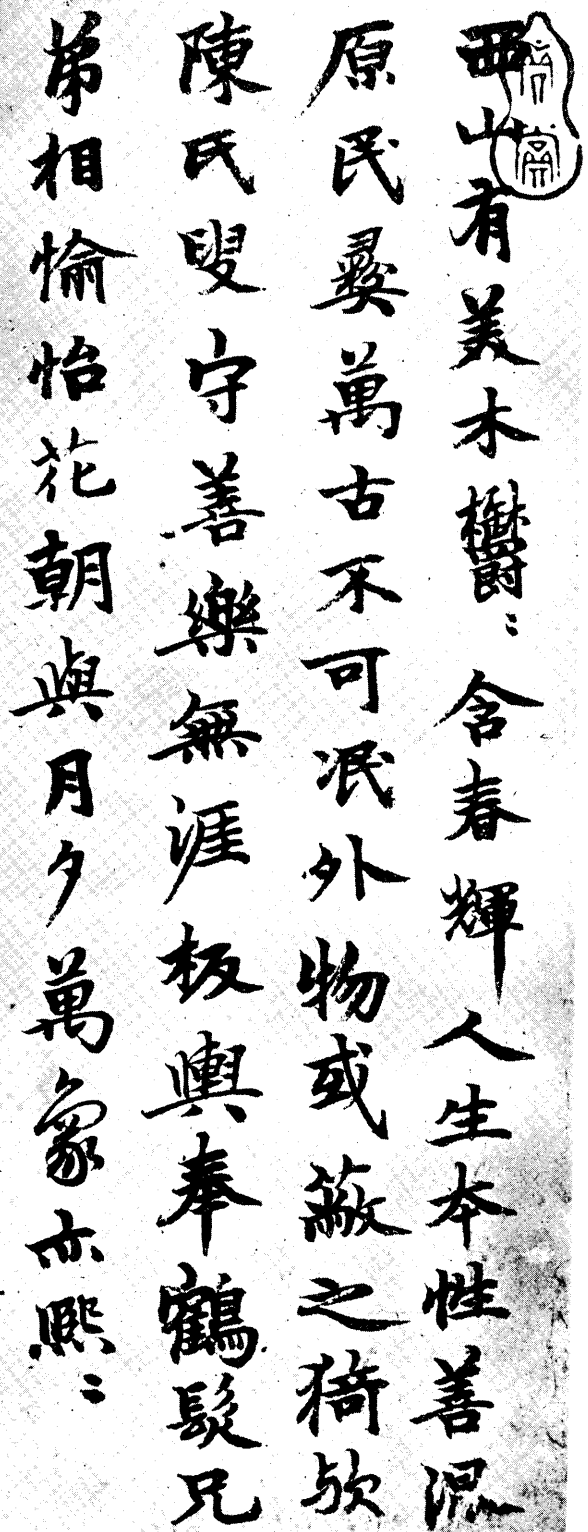 西山有美木鬱〻含春輝人生本性善混
原民彝萬古不可泯外物或蔽之猗歟
陳氏叟守善樂無涯板輿奉鶴髮兄
弟相愉怡花朝與月夕萬象亦熙〻